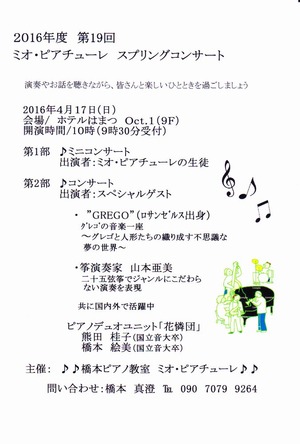 2016年度 第19回
ミオ・ピアチューレ スプリングコンサート
演奏やお話を聴きながら、皆さんと楽しいひとときを過ごしましょう
2016年4月17日(日)
会場/ ホテルはまつ Oct.1(9F)
開演時間/10時(9時30分受付)
第1部 ♪ミニコンサート
出演者:ミオ・ピアチューレの生徒
第2部 ♪コンサート
出演者:スペシャルゲスト
・ ”GREGO”(ロサンゼルス出身)
グレゴの音楽一座
～グレゴと人形たちの織り成す不思議な
夢の世界～
・箏演奏家 山本亜美
二十五弦箏でジャンルにこだわら
ない演奏を表現
共に国内外で活躍中
ピアノデュオユニット「花憐団」
熊田 桂子(国立音大卒)
橋本 絵美(国立音大卒)
主催: ♪♪橋本ピアノ教室 ミオ・ピアチューレ♪♪
問い合わせ:橋本 真澄 ℡ 090 7079 9264